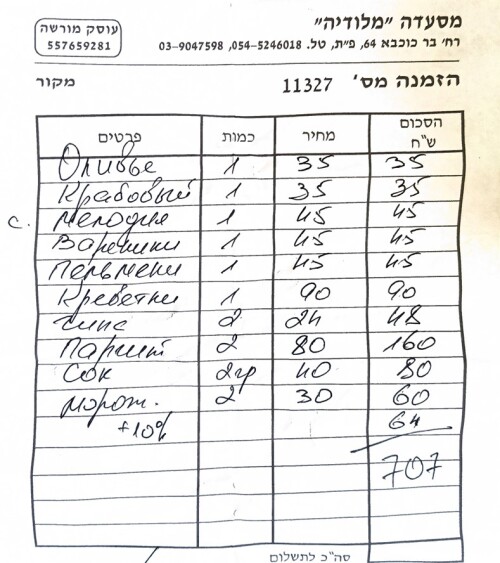 מסעדה "מלודיה"
עוסק מורשה
557659281
רח' בר כוכבא 64, פ"ת, טל. 054-5246018, 03-9047598
הזמנה מס' 11327 מקור
פרטים כמות מחיר הסכום ש"ח
Оливье 1 35 35
Крабовый 1 35 35
с. Мелодия 1 45 45
Вареники 1 45 45
Пельмени 1 45 45
Креветки 1 90 90
Чипс 2 24 48
Паргит 2 80 160
Сок 2гр 40 80
морож. 2 30 60
+10% 64
707
סה"כ לתשלום